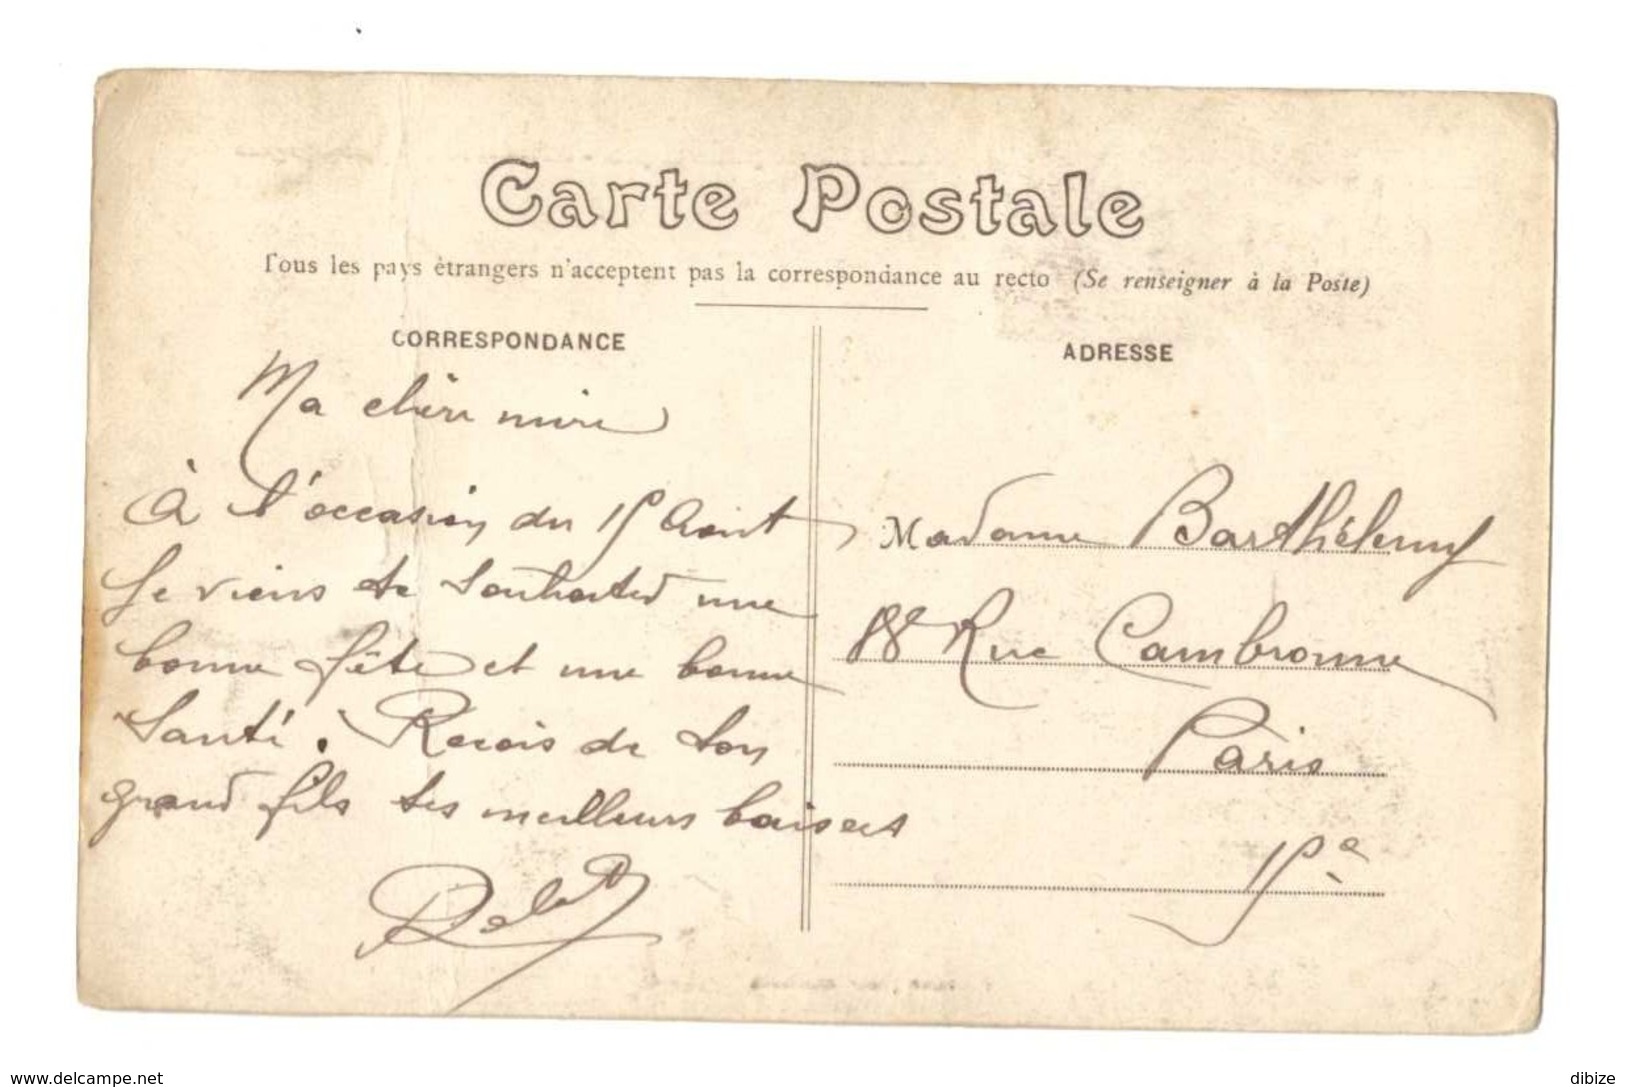 Carte Postale
Tous les pays étrangers n'acceptent pas la correspondance au recto (Se renseigner à la Poste)
CORRESPONDANCE
ADRESSE
Ma chère mère
À l'occasion du 15 Aout
je viens te souhaiter une
bonne fête et une bonne
santé. Reçois de ton
grand fils tes meilleurs baisers
Madame Barthélemy
88 Rue Cambronne
Paris
15e
www.delcampe.net
dibize